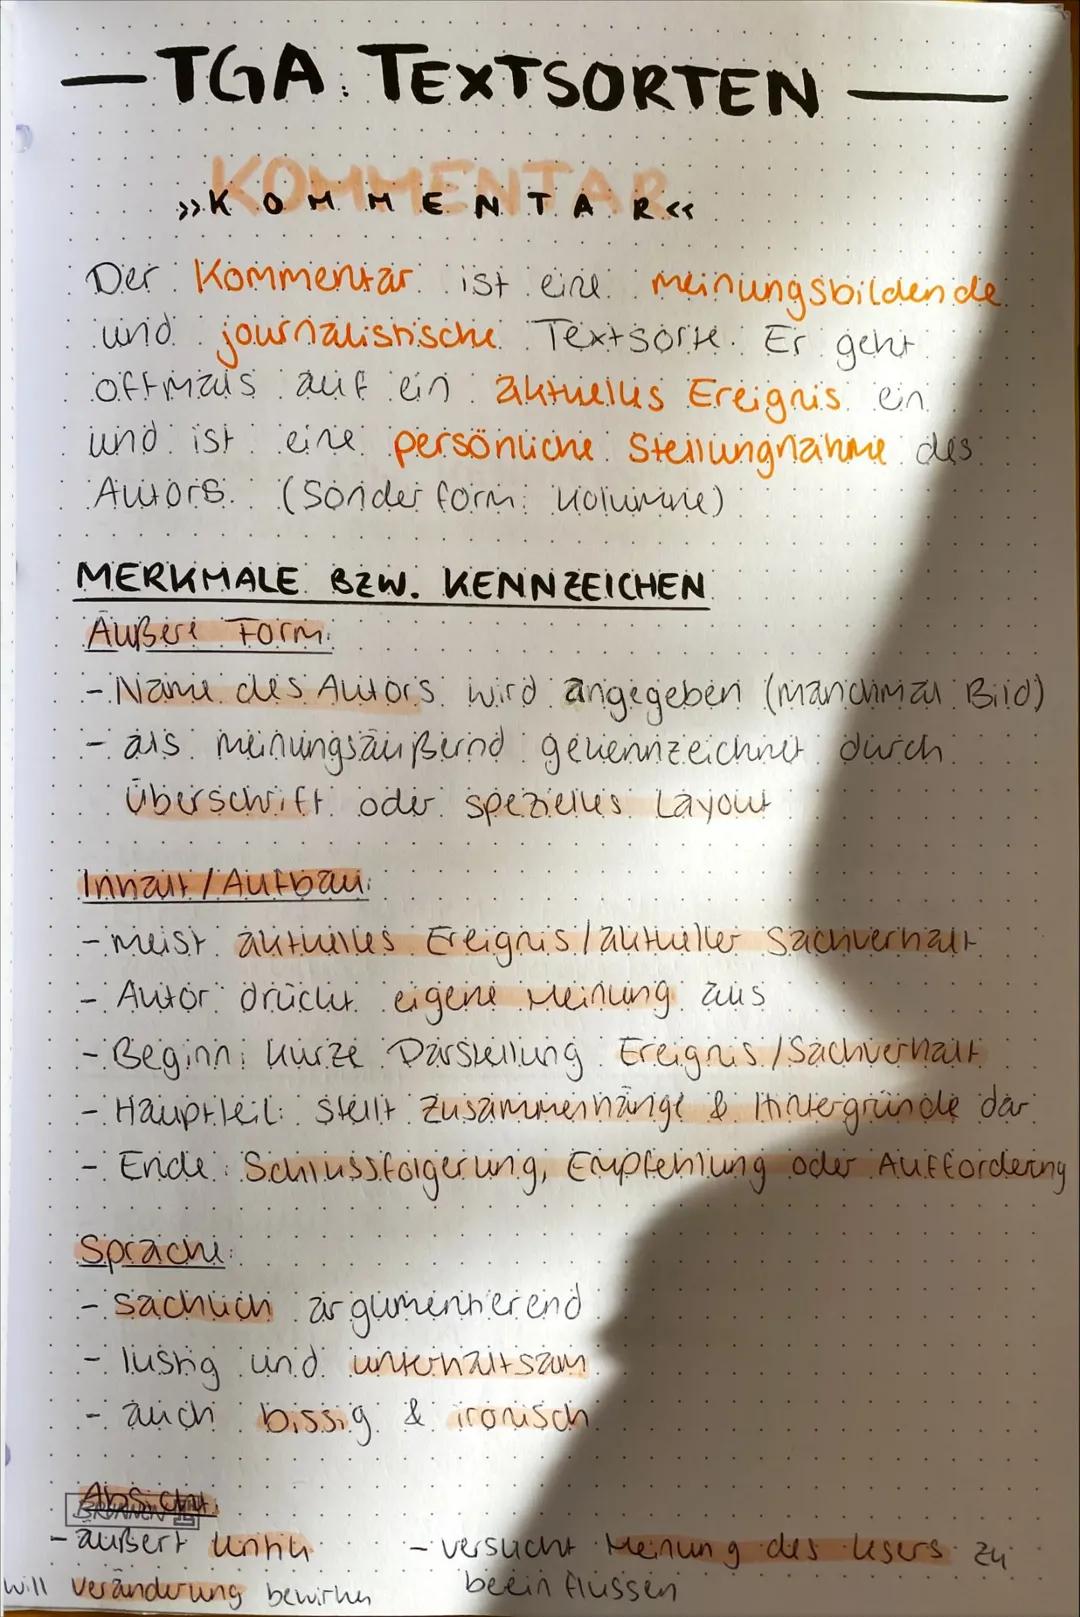 — TGA: TEXTSORTEN —
KOMMENTAR
»KOMMENTAR«
Der Kommentar ist eine meinungsbildende
und journalistische Textsorte. Er geht
oftmals auf ein aktuelles Ereignis ein
und ist eine persönliche Stellungnahme des
Autors. (Sonderform: Kolumne)
MERKMALE BZW. KENNZEICHEN
Äußere Form:
- Name des Autors wird angegeben (manchmal Bild)
- als meinungsäußernd gekennzeichnet durch
Überschrift oder spezielles Layout
Inhalt / Aufbau:
- meist aktuelles Ereignis / aktueller Sachverhalt
- Autor drückt eigene Meinung aus
- Beginn: kurze Darstellung Ereignis / Sachverhalt
- Hauptteil: stellt Zusammenhänge & Hintergründe dar
- Ende: Schlussfolgerung, Empfehlung oder Aufforderung
Sprache:
- sachlich argumentierend
- lustig und unterhaltsam
- auch bissig & ironisch
Absicht:
BRUNNEN
- äußert Kritik - versucht Meinung des Lesers zu
will Veränderung bewirken beeinflussen